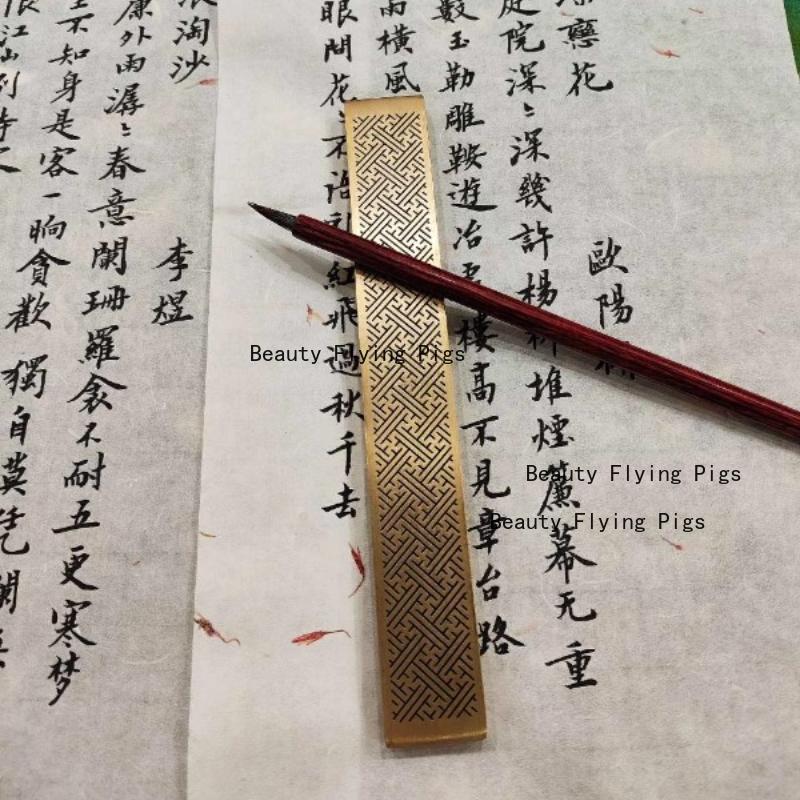 戀花
歐陽
庭院深〻深幾許楊柳堆煙簾幕无重
數玉勒雕鞍遊冶處樓高不見章台路
雨橫風
眼問花〻不語亂紅飛過秋千去
浪淘沙
李煜
簾外雨潺〻春意闌珊羅衾不耐五更寒梦
里不知身是客一晌貪歡獨自莫凭闌
限江山別時
Beauty Flying Pigs
Beauty Flying Pigs
Beauty Flying Pigs